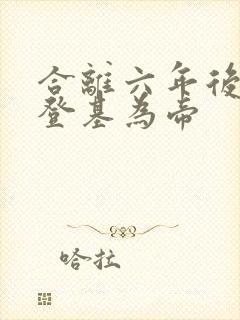 合離六年後
登基為帝
哈拉